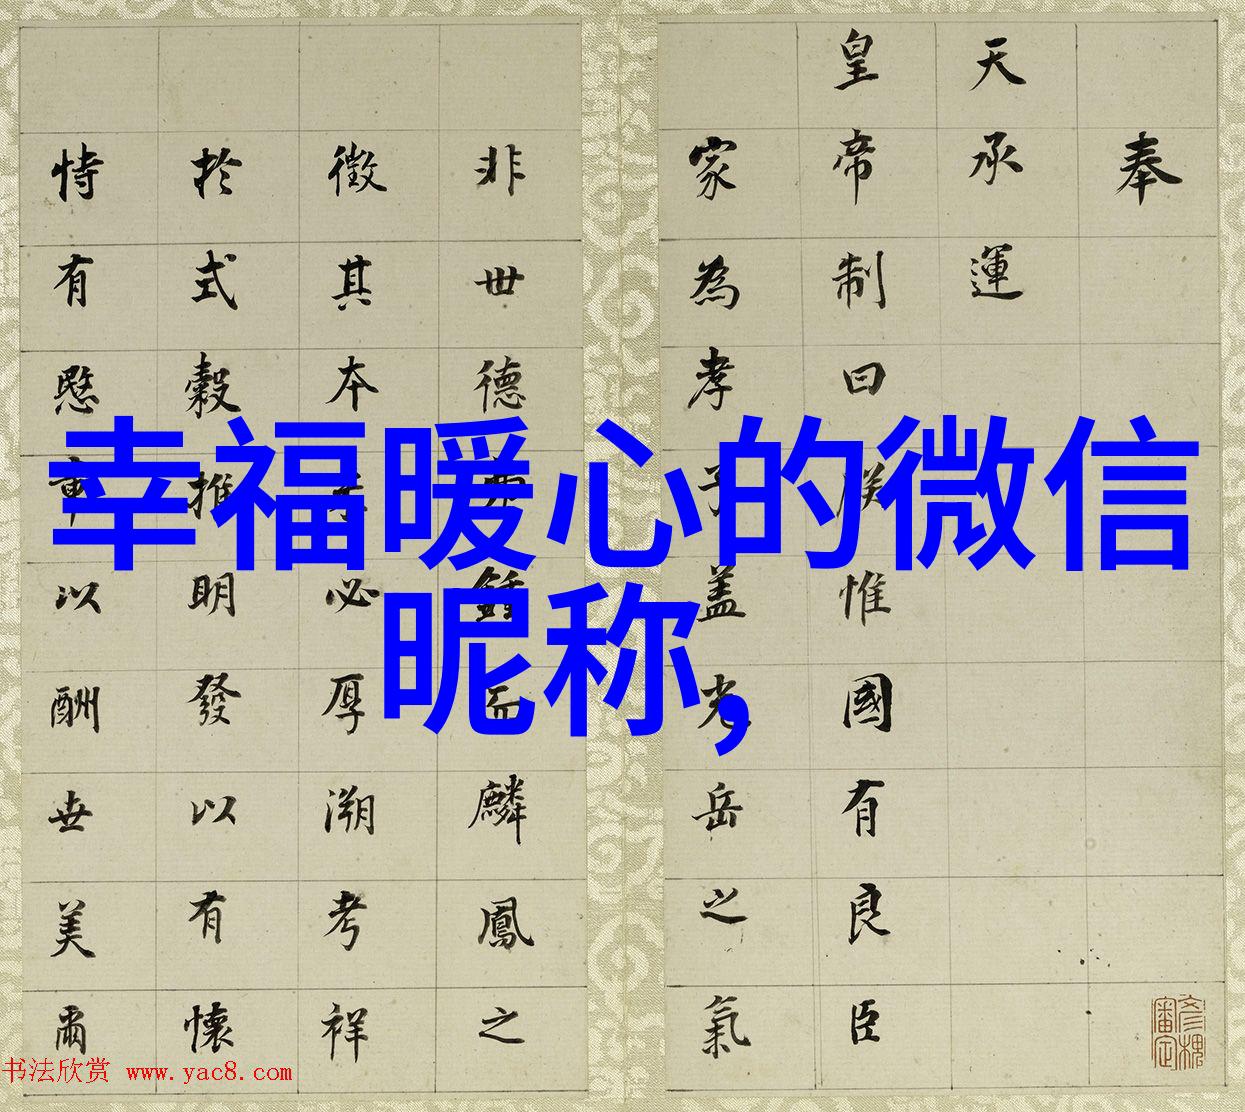 幸福暖心的微信
昵称,
奉
天承運
皇帝制曰朕惟國有良臣
家為孝子蓋光岳之氣
非世德鍾麟鳳之
徵其本必厚溯考祥
於式穀推明發以有懷
恃有愍以酬世美爾
彦槐
審定
书法欣赏 www.yac8.com